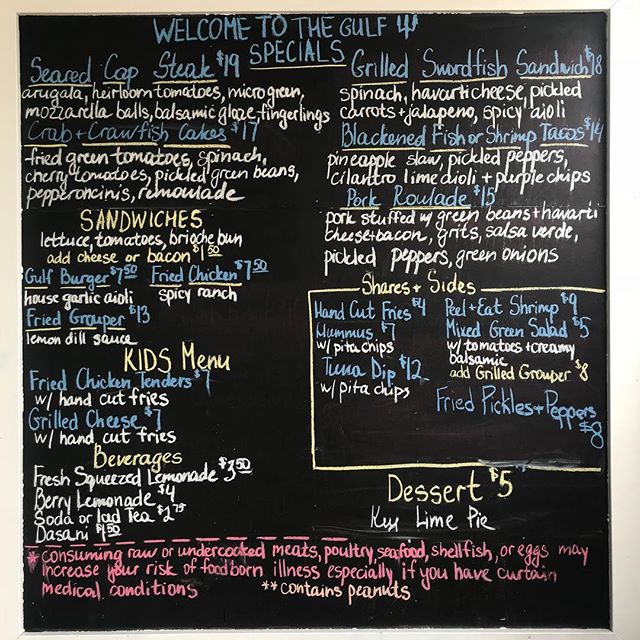 WELCOME TO THE GULF
SPECIALS
Seared Cap Steak $19
arugala, heirloom tomatoes, microgreen,
mozzarella balls, balsamic glaze, fingerlings
Crab + Crawfish Cakes $17
fried green tomatoes, spinach,
cherry tomatoes, pickled green beans,
pepperoncinis, remoulade
Grilled Swordfish Sandwich $18
spinach, havarti cheese, pickled
carrots + jalapeno, spicy aioli
Blackened Fish or Shrimp Tacos $14
pineapple slaw, pickled peppers,
cilantro lime aioli + purple chips
Pork Roulade $15
pork stuffed w/ green beans + havarti
cheese + bacon, grits, salsa verde,
pickled peppers, green onions
SANDWICHES
lettuce, tomatoes, brioche bun
add cheese or bacon $1.50
Gulf Burger $7.50 Fried Chicken $7.50
house garlic aioli spicy ranch
Fried Grouper $13
lemon dill sauce
KIDS Menu
Fried Chicken Tenders $7
w/ hand cut fries
Grilled Cheese $7
w/ hand cut fries
Beverages
Fresh Squeezed Lemonade $3.50
Berry Lemonade $4
Soda or Iced Tea $2.75
Dasani $1.50
Shares + Sides
Hand Cut Fries $4
Hummus $7
w/ pita chips
Tuna Dip $12
w/ pita chips
Peel + Eat Shrimp $9
Mixed Green Salad $5
w/ tomatoes + creamy
balsamic
add Grilled Grouper $8
Fried Pickles + Peppers
$8
Dessert $5
Key Lime Pie
* consuming raw or undercooked meats, poultry, seafood, shellfish, or eggs may
increase your risk of foodborn illness especially if you have curtain
medical conditions
**contains peanuts